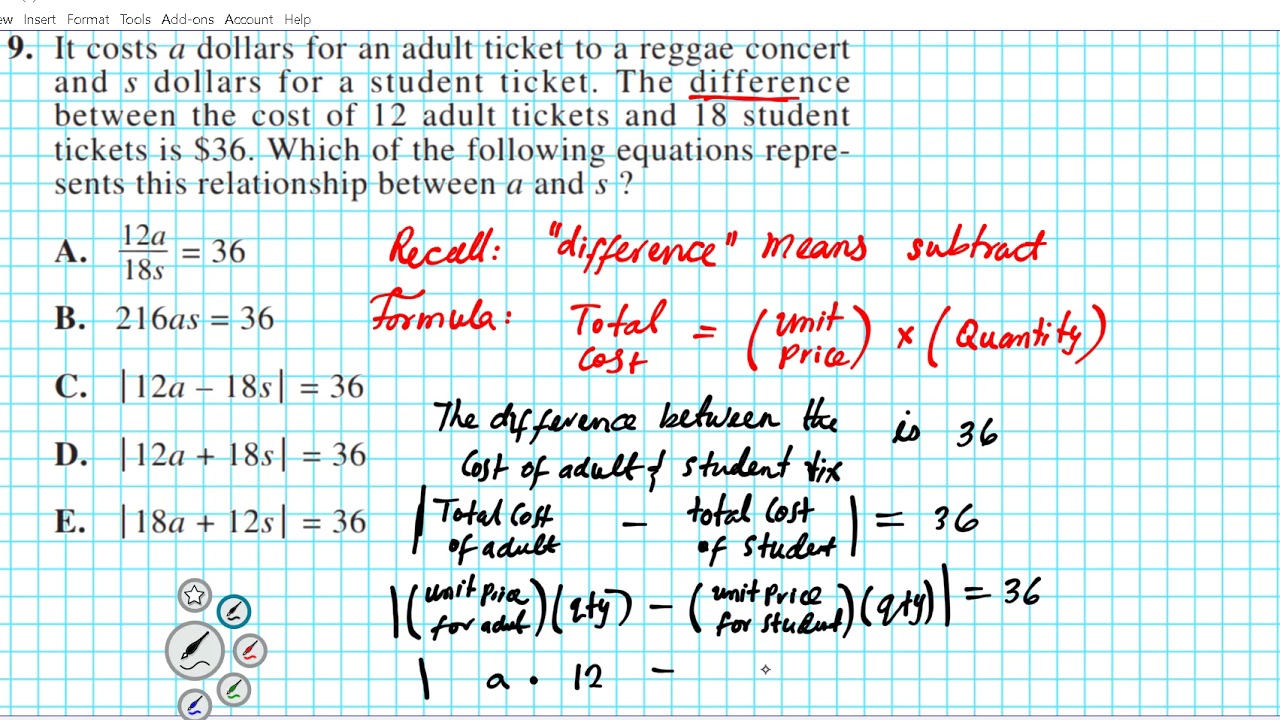 ew Insert Format Tools Add-ons Account Help
9. It costs a dollars for an adult ticket to a reggae concert
and s dollars for a student ticket. The difference
between the cost of 12 adult tickets and 18 student
tickets is $36. Which of the following equations repre-
sents this relationship between a and s ?
A. 12a/18s = 36
B. 216as = 36
C. |12a – 18s| = 36
D. |12a + 18s| = 36
E. |18a + 12s| = 36
Recall: "difference" means subtract
Formula: Total cost = (unit price) × (Quantity)
The difference between the is 36
cost of adult & student tix
|Total cost of adult − total cost of student| = 36
|(unit price for adult)(qty) − (unit price for student)(qty)| = 36
| a · 12 −